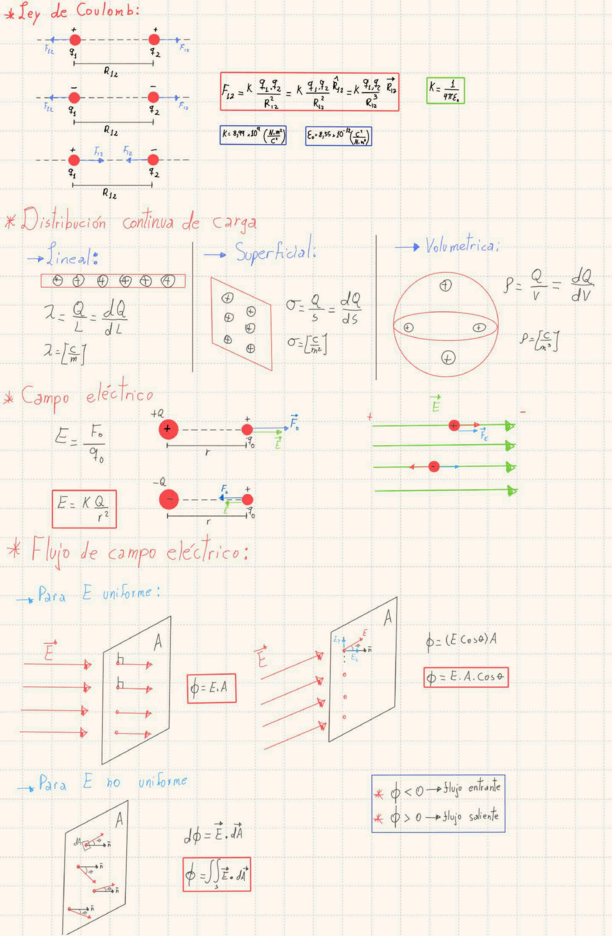 *Ley de Coulomb:
+ +
F₁₂ q₁ q₂ F₁₂
R₁₂
- -
F₁₂ q₁ q₂ F₁₂
R₁₂
+ -
q₁ F₁₂ F₁₂ q₂
R₁₂
F₁₂ = K q₁.q₂/R₁₂² = K q₁.q₂/R₁₂² R̂₁₂ = K q₁.q₂/R₁₂³ R⃗₁₂
K = 1/4πε₀
K = 8,99 × 10⁹ (N.m²/C²)
ε₀ = 8,85 × 10⁻¹² (C²/N.m²)
* Distribución continua de carga
→ Lineal:
+ + + + + +
λ = Q/L = dQ/dL
λ = [C/m]
→ Superficial:
+ + + + + +
σ = Q/S = dQ/dS
σ = [C/m²]
→ Volumetrica:
+ + + +
ρ = Q/V = dQ/dV
ρ = [C/m³]
* Campo eléctrico
E = F₀/q₀
+Q + F⃗₀
+ q₀ E⃗
r
E⃗
+ -
+ F⃗e
-
E = K Q/r²
-Q F₀ +
- E q₀
r
* Flujo de campo eléctrico:
→ Para E uniforme:
E⃗ A
ϕ = E.A
E⃗ A
E θ n⃗
ϕ = (E Cosθ) A
ϕ = E.A.Cosθ
→ Para E no uniforme
A
dA θ n⃗
θ n⃗
θ n⃗
θ n⃗
dϕ = E⃗ . dA⃗
ϕ = ∬ₛ E⃗ . dA⃗
* ϕ < 0 → flujo entrante
* ϕ > 0 → flujo saliente